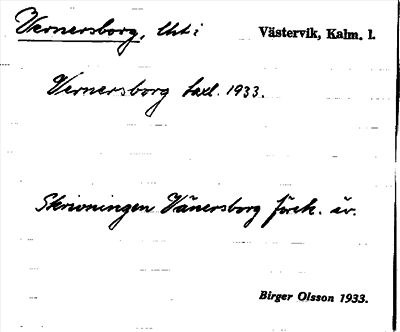 Vernersborg, lht i Västervik, Kalm. l.
Vernersborg taxl. 1933.
Skrivningen Vänersborg förek. äv.
Birger Olsson 1933.